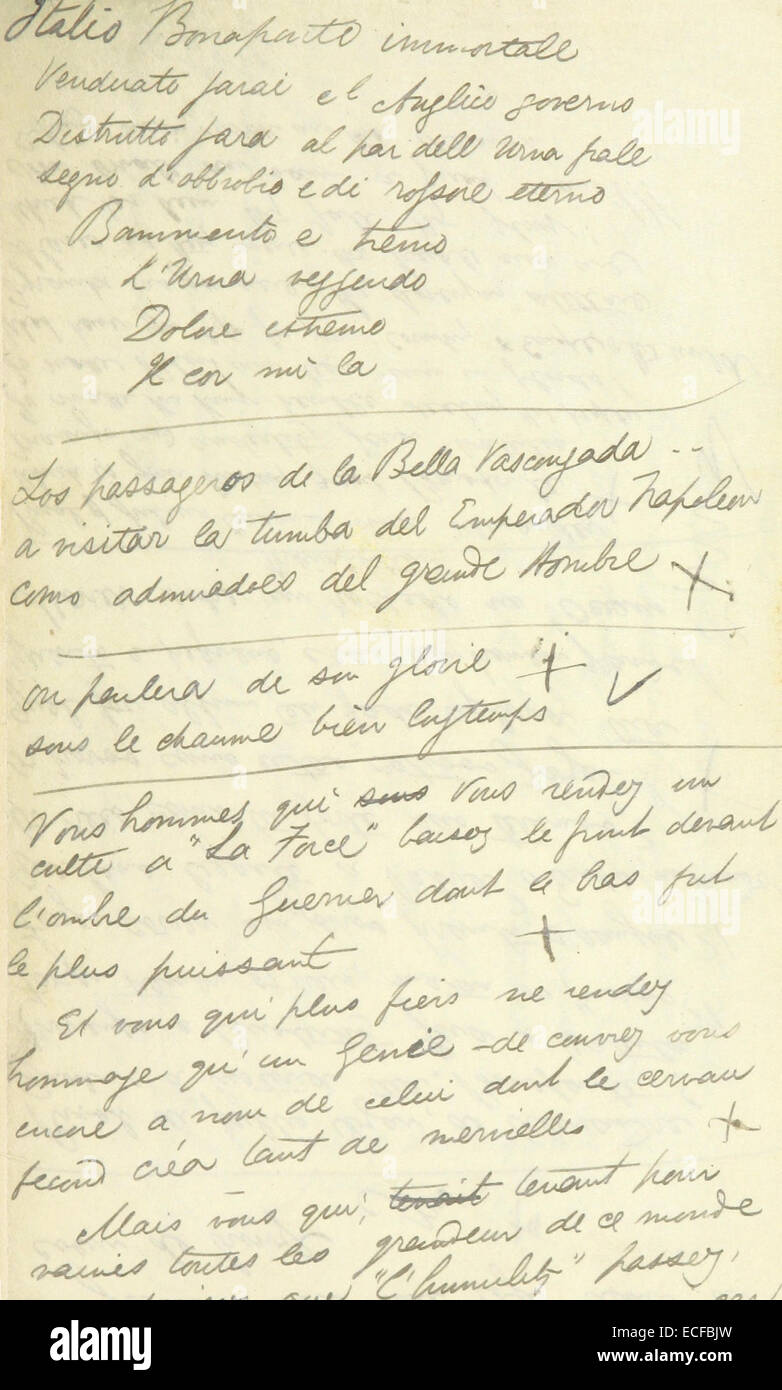 Italio Bonaparte immortale
Vendicato sarai e l Anglico governo
Distrutto sara al par dell Urna frale
segno d'obbrobio e di rossore eterno
Rammento e tremo
L'Urna veggendo
Dolore estremo
Il cor mi la
Los passageros de la Bella Vascongada ..
a visitar la tumba del Emperador Napoleon
como admiradores del grande Hombre
on parlera de sa gloire
sous le chaume bien longtemps
Vous hommes qui sous vous rendez un
culte a "La Force" baisez le front devant
l'ombre du Guerrier dont le bras fut
le plus puissant
Et vous qui plus fiers ne rendez
hommage qu'un Genie - de couvrez vous
encore a nom de celui dont le cerveau
fecond créa tant de merveilles
Mais vous qui, tenait tenant pour
vaines toutes les grandeur de ce monde
que "l'humilité" passez,
alamy
alamy
alamy
alamy
Image ID: ECFBJW
www.alamy.com